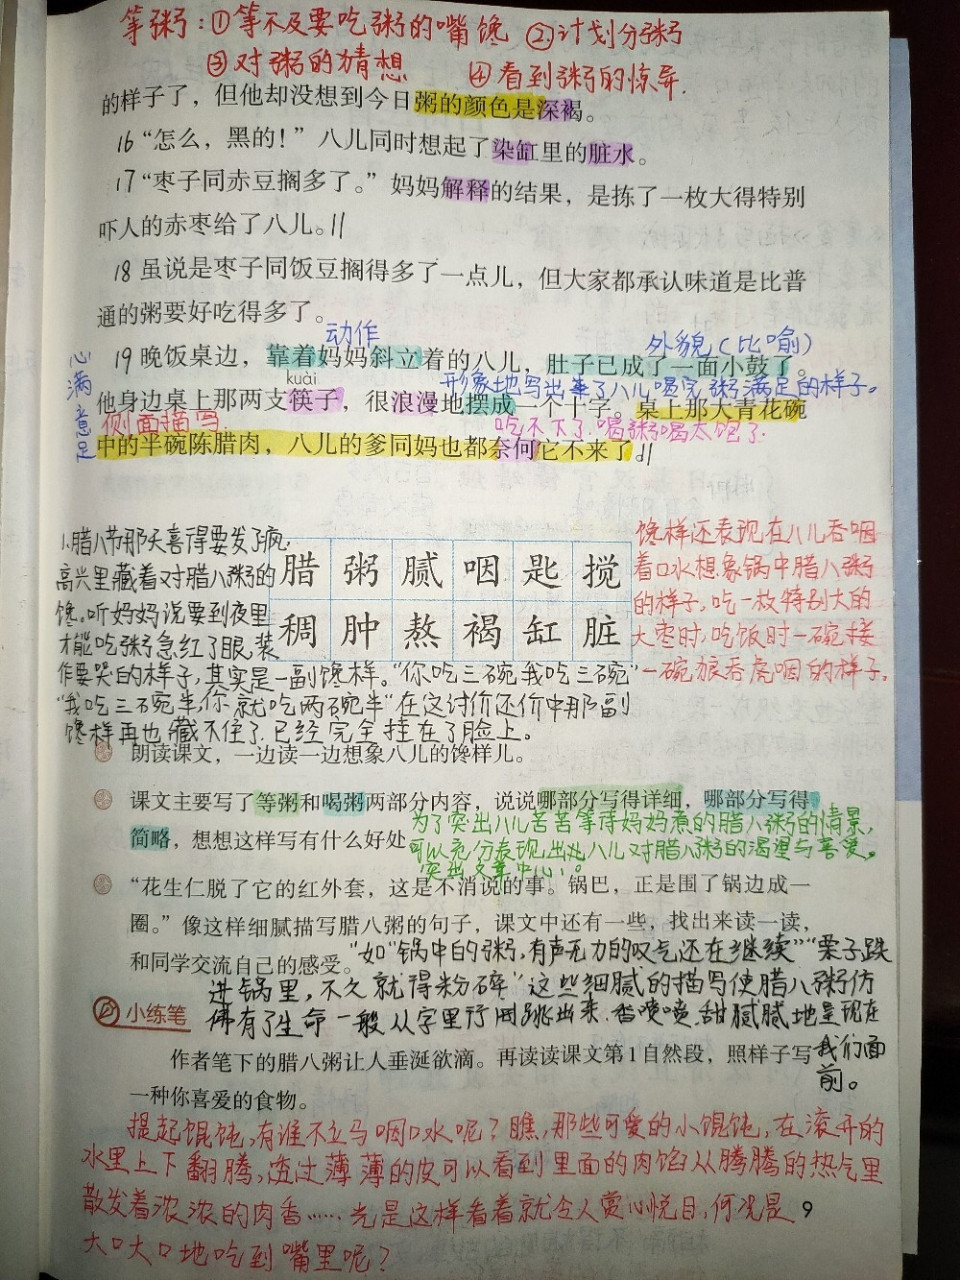 等粥:①等不及要吃粥的嘴馋 ②计划分粥
③对粥的猜想 ④看到粥的惊异.
的样子了，但他却没想到今日粥的颜色是深褐。
16 “怎么，黑的！” 八儿同时想起了染缸里的脏水。
17 “枣子同赤豆搁多了。” 妈妈解释的结果，是拣了一枚大得特别
吓人的赤枣给了八儿。||
18 虽说是枣子同饭豆搁得多了一点儿，但大家都承认味道是比普
通的粥要好吃得多了。
动作 外貌(比喻)
19 晚饭桌边，靠着妈妈斜立着的八儿，肚子已成了一面小鼓了。
心满意足
kuài
形象地写出了八儿喝完粥满足的样子。
他身边桌上那两支筷子，很浪漫地摆成一个十字。桌上那大青花碗
侧面描写. 吃不下了.喝粥喝太饱了.
中的半碗陈腊肉，八儿的爹同妈也都奈何它不来了。||
1、腊八节那天喜得要发了疯,
高兴里藏着对腊八粥的
馋。听妈妈说要到夜里
才能吃粥急红了眼、装
作要哭的样子,其实是一副馋样。“你吃三碗我吃三碗”
“我吃三碗半,你就吃两碗半”在这讨价还价中那副
馋样再也藏不住了.已经完全挂在了脸上。
腊 粥 腻 咽 匙 搅
稠 肿 熬 褐 缸 脏
馋样还表现在八儿吞咽
着口水想象锅中腊八粥
的样子,吃一枚特别大的
大枣时,吃饭时一碗接
一碗狼吞虎咽的样子.
朗读课文，一边读一边想象八儿的馋样儿。
课文主要写了等粥和喝粥两部分内容，说说哪部分写得详细，哪部分写得
简略，想想这样写有什么好处
为了突出八儿苦苦等待妈妈煮的腊八粥的情景,
可以充分表现出八儿对腊八粥的渴望与喜爱。
突出文章中心。
“花生仁脱了它的红外套，这是不消说的事。锅巴，正是围了锅边成一
圈。” 像这样细腻描写腊八粥的句子，课文中还有一些，找出来读一读，
和同学交流自己的感受。
“如“锅中的粥,有声无力的叹气还在继续”“栗子跌
进锅里,不久就得粉碎”这些细腻的描写使腊八粥仿
佛有了生命一般从字里行间跳出来.香喷喷,甜腻腻地呈现在
我们面
前。
小练笔
作者笔下的腊八粥让人垂涎欲滴。再读读课文第1自然段，照样子写
一种你喜爱的食物。
提起馄饨,有谁不立马咽口水呢?瞧,那些可爱的小馄饨,在滚开的
水里上下翻腾,透过薄薄的皮可以看到里面的肉馅从腾腾的热气里
散发着浓浓的肉香……光是这样看着就令人赏心悦目,何况是
大口大口地吃到嘴里呢?
9